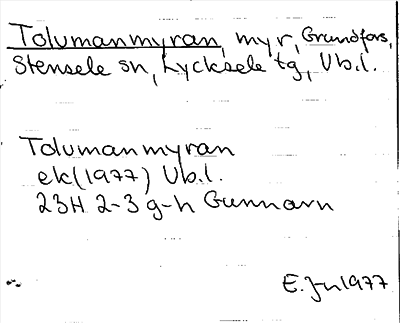 Tolumanmyran, myr, Grundfors,
Stensele sn, Lycksele tg, Vb.l.
Tolumanmyran
ek (1977) Vb.l.
23H 2-3 g-h Gunnarn
E. Jn 1977